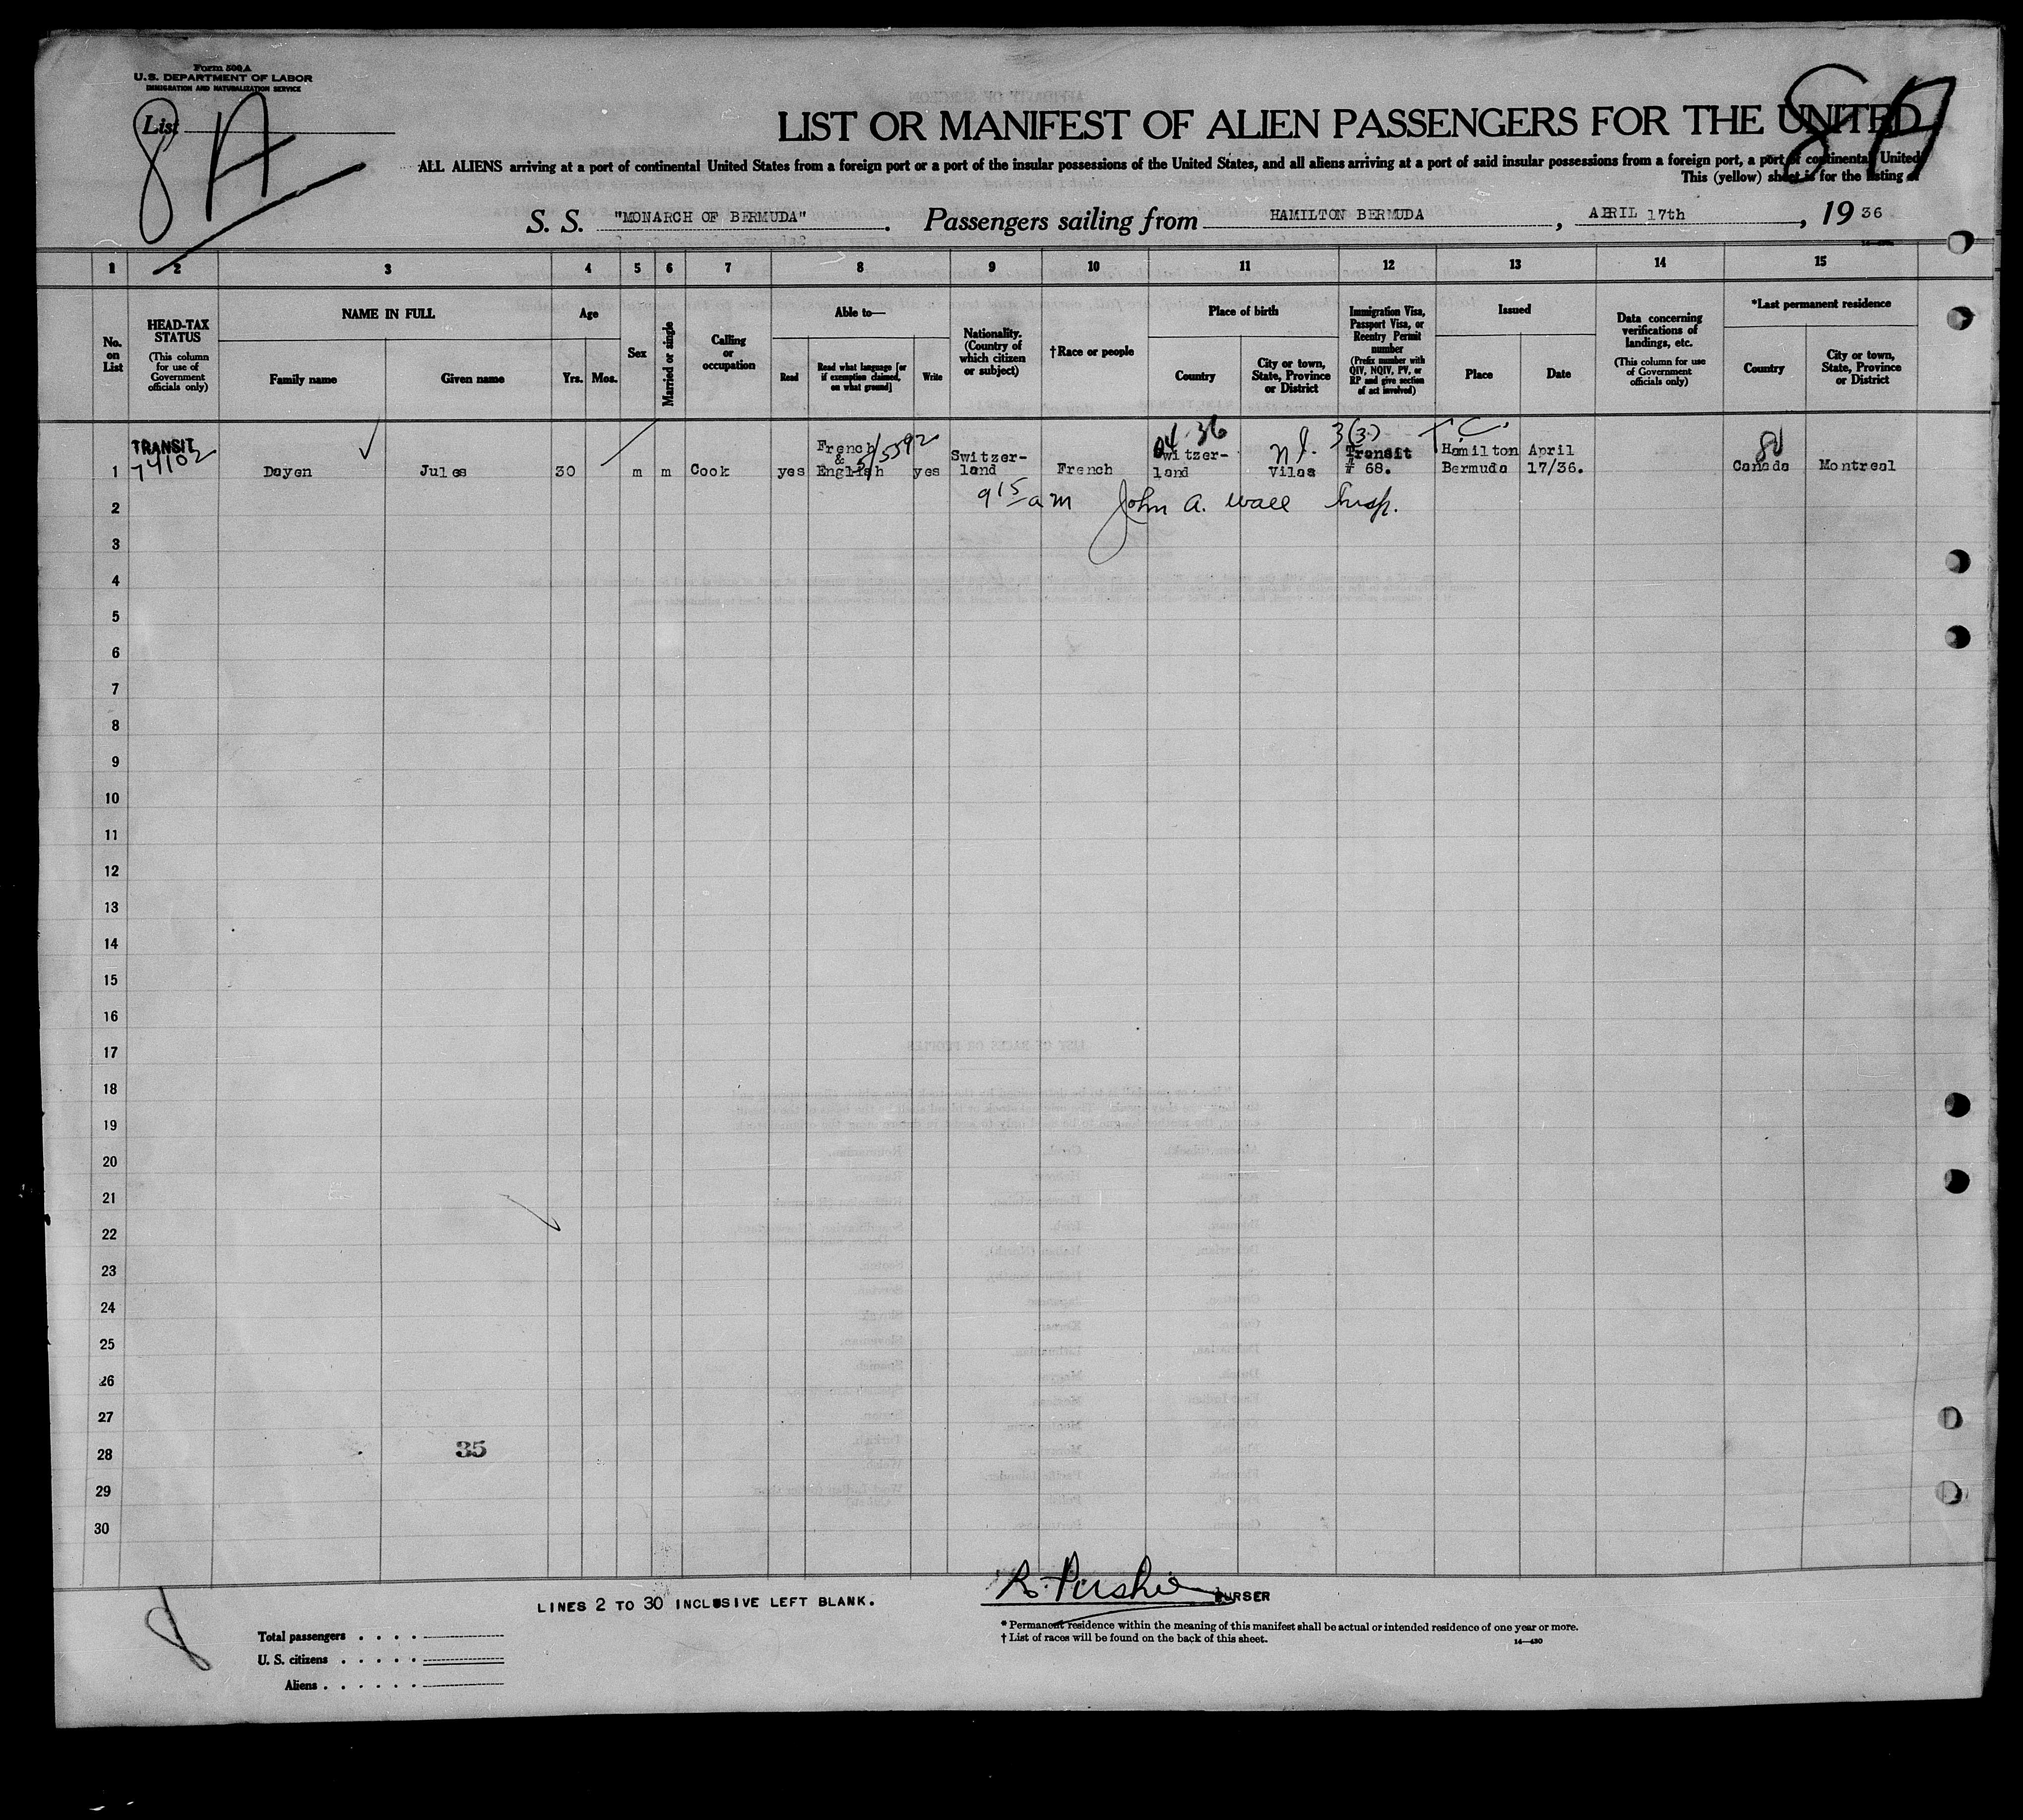 Form 500A
U.S. DEPARTMENT OF LABOR
IMMIGRATION AND NATURALIZATION SERVICE
List
8A
8A
LIST OR MANIFEST OF ALIEN PASSENGERS FOR THE UNITED
ALL ALIENS arriving at a port of continental United States from a foreign port or a port of the insular possessions of the United States, and all aliens arriving at a port of said insular possessions from a foreign port, a port of continental United
This (yellow) sheet is for the listing of
S. S. "MONARCH OF BERMUDA". Passengers sailing from HAMILTON BERMUDA, APRIL 17th, 1936
1 2 3 4 5 6 7 8 9 10 11 12 13 14 15
No. on List
HEAD-TAX STATUS
(This column for use of Government officials only)
NAME IN FULL
Family name
Given name
Age
Yrs. Mos.
Sex
Married or single
Calling or occupation
Able to—
Read
Read what language [or if exemption claimed, on what ground]
Write
Nationality. (Country of which citizen or subject)
†Race or people
Place of birth
Country
City or town, State, Province or District
Immigration Visa, Passport Visa, or Reentry Permit number
(Prefix number with QIV, NQIV, PV, or RP and give section of act involved)
Issued
Place
Date
Data concerning verifications of landings, etc.
(This column for use of Government officials only)
*Last permanent residence
Country
City or town, State, Province or District
TRANSIT
74102
5/5592
04 36
3(3)
T.C.
1 Dayen Jules 30 m m Cook yes French & English yes Switzer-land French Switzer-land Vilas Transit # 68. Hamilton Bermuda April 17/36. Canada Montreal
9 15 am John A. Wall Insp.
2
3
4
5
6
7
8
9
10
11
12
13
14
15
16
17
18
19
20
21
22
23
24
25
26
27
28
35
29
30
LINES 2 TO 30 INCLUSIVE LEFT BLANK.
PURSER
Total passengers
U. S. citizens
Aliens
* Permanent residence within the meaning of this manifest shall be actual or intended residence of one year or more.
† List of races will be found on the back of this sheet.
14—430